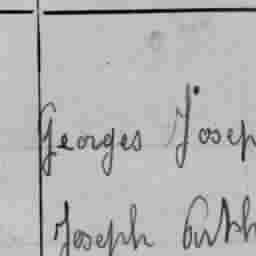 Georges Josep
Joseph Anth